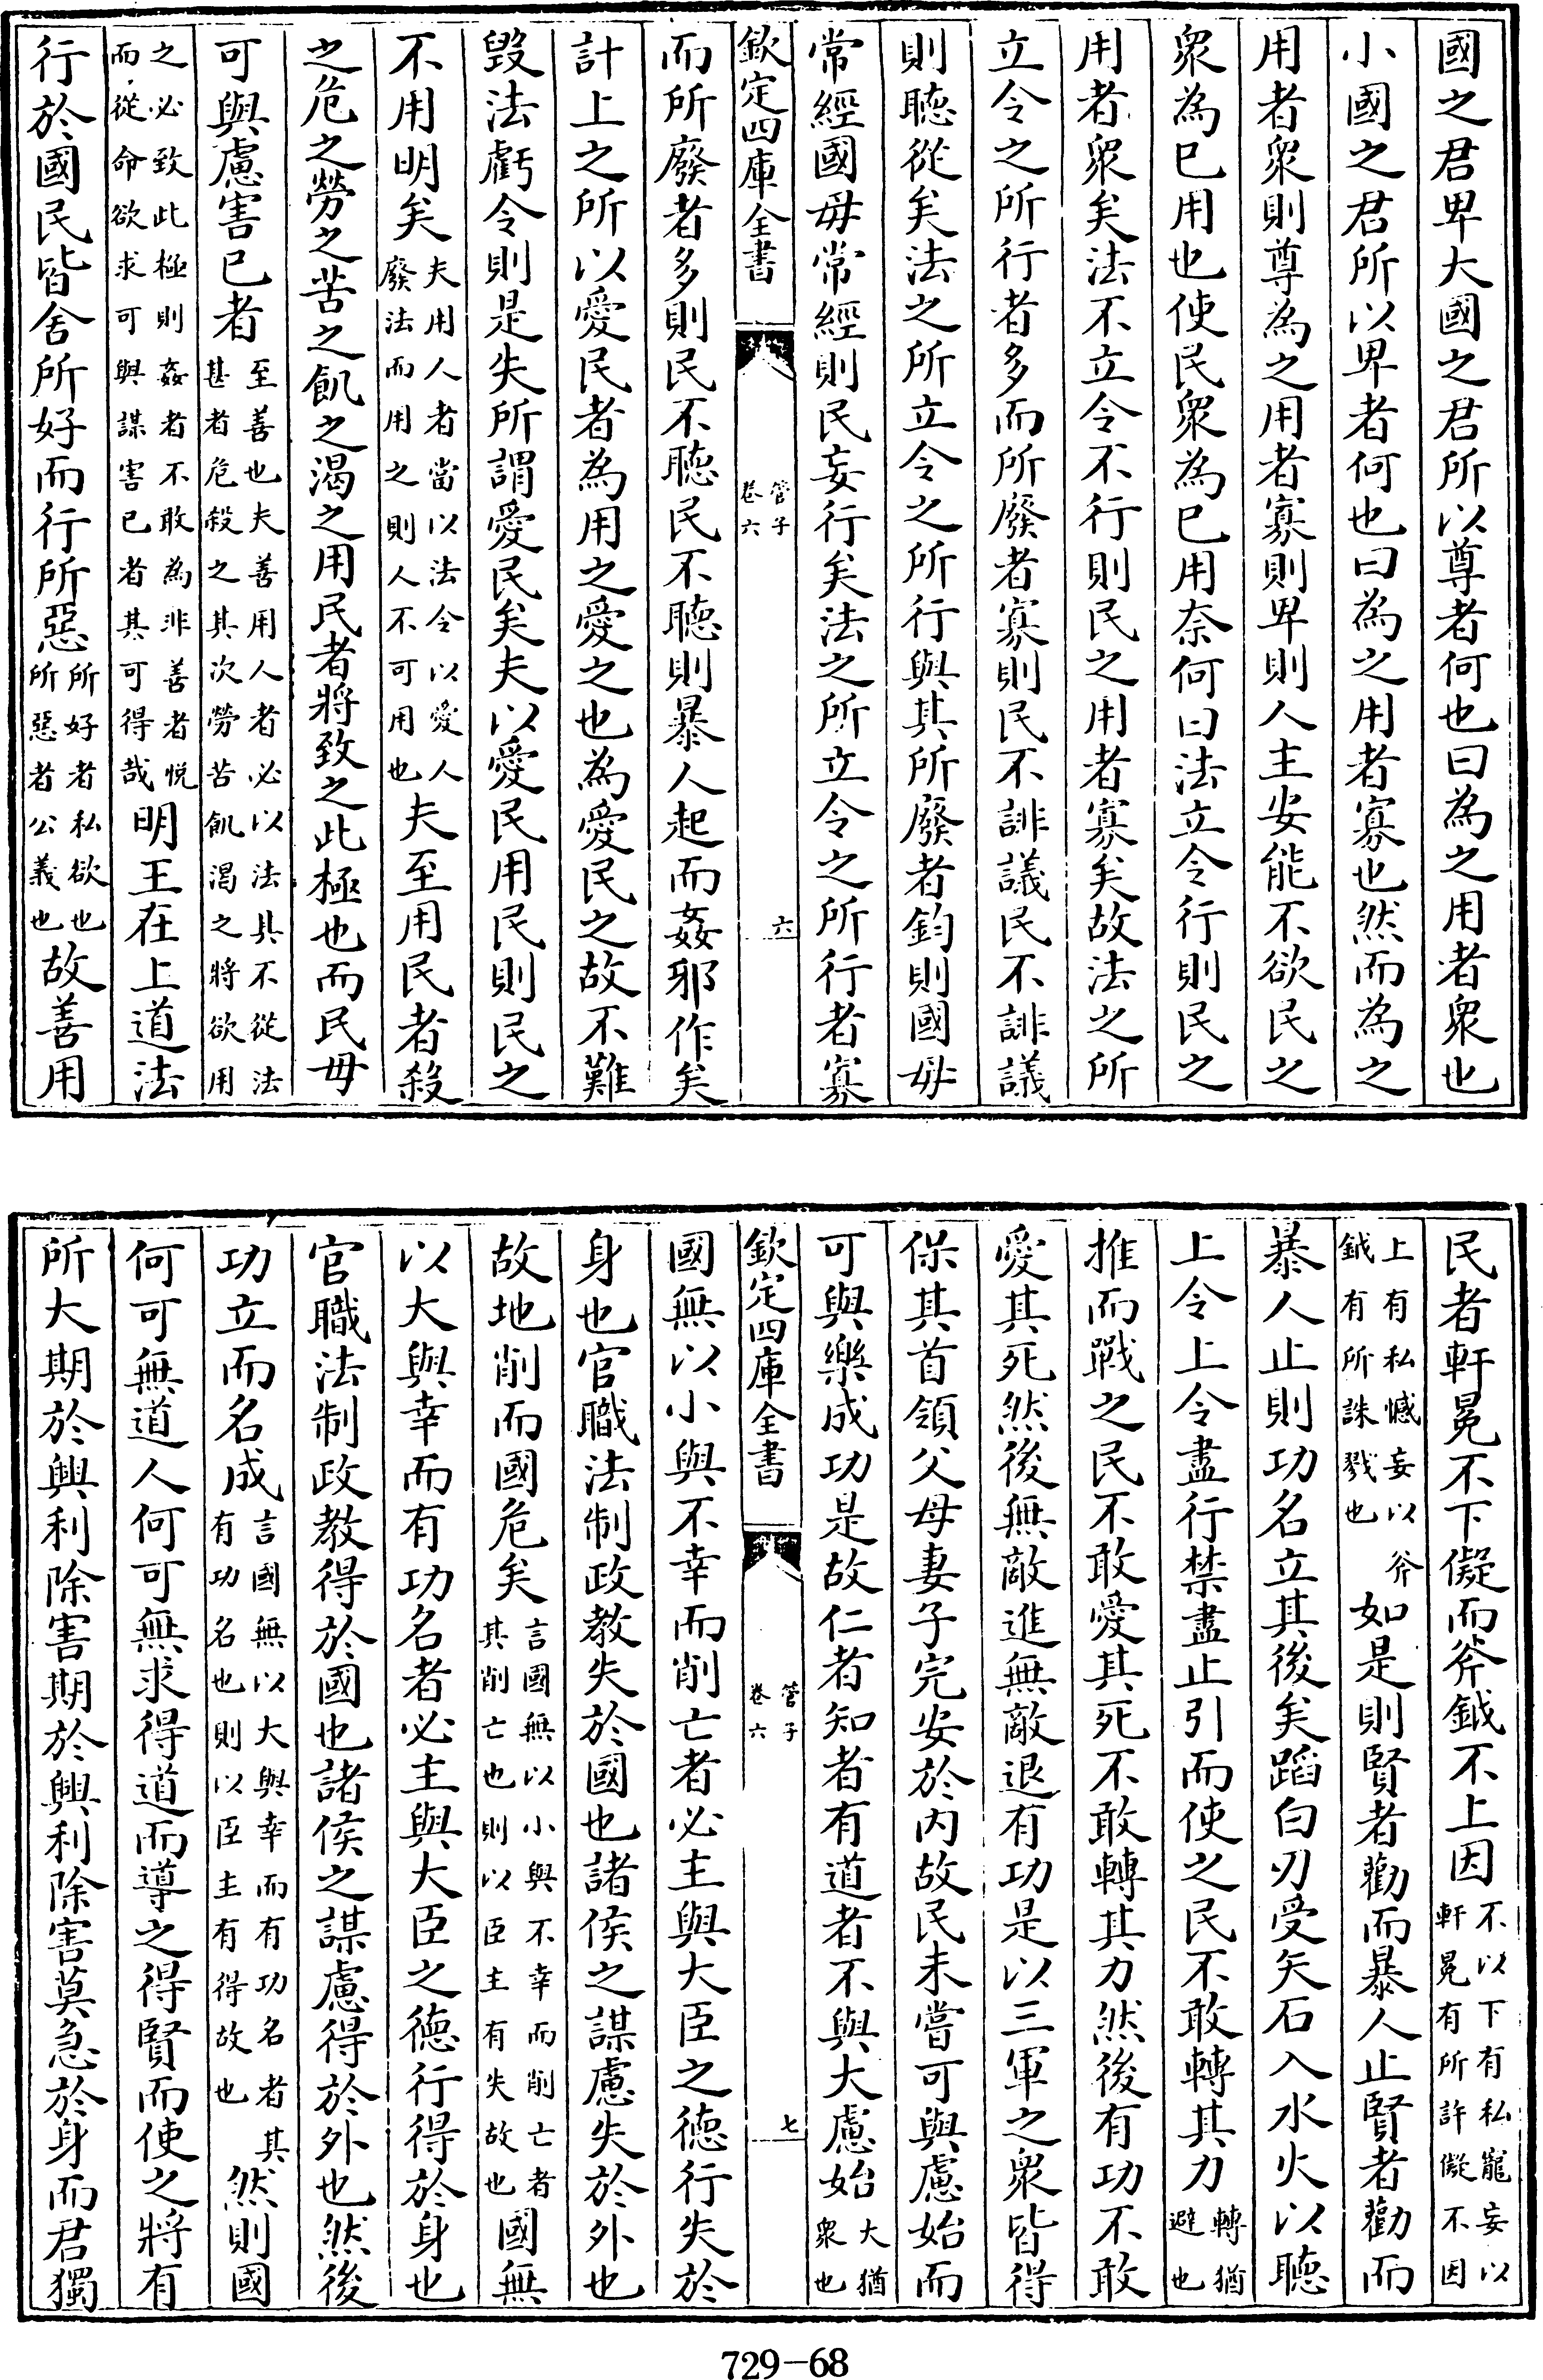 國之君卑大國之君所以尊者何也曰為之用者衆也
小國之君所以卑者何也曰為之用者寡也然而為之
用者衆則尊為之用者寡則卑則人主安能不欲民之
衆為已用也使民衆為已用奈何曰法立令行則民之
用者衆矣法不立令不行則民之用者寡矣故法之所
立令之所行者多而所廢者寡則民不誹議民不誹議
則聽從矣法之所立令之所行與其所廢者鈞則國毋
常經國毋常經則民妄行矣法之所立令之所行者寡
欽定四庫全書
管子
卷六
六
而所廢者多則民不聽民不聽則暴人起而姦邪作矣
計上之所以愛民者為用之愛之也為愛民之故不難
毀法虧令則是失所謂愛民矣夫以愛民用民則民之
不用明矣夫用人者當以法令以愛人廢法而用之則人不可用也夫至用民者殺
之危之勞之苦之飢之渴之用民者將致之此極也而民毋
可與慮害已者至善也夫善用人者必以法具不從法甚者危殺之其次勞苦飢渴之將欲用
之必致此極則姦者不敢為非善者悅而從命欲求可與謀害已者其可得哉明王在上道法
行於國民皆舍所好而行所惡所好者私欲也所惡者公義也故善用
民者軒冕不下儗而斧鉞不上因不以下有私寵妄以軒冕有所許儗不因
上有私憾妄以斧鉞有所誅戮也如是則賢者勸而暴人止賢者勸而
暴人止則功名立其後矣蹈白刃受矢石入水火以聽
上令上令盡行禁盡止引而使之民不敢轉其力轉猶避也
推而戰之民不敢愛其死不敢轉其力然後有功不敢
愛其死然後無敵進無敵退有功是以三軍之衆皆得
保其首領父母妻子完安於内故民未嘗可與慮始而
可與樂成功是故仁者知者有道者不與大慮始大猶衆也
欽定四庫全書
管子
卷六
七
國無以小與不幸而削亡者必主與大臣之德行失於
身也官職法制政教失於國也諸侯之謀慮失於外也
故地削而國危矣言國無以小與不幸而削亡者其削亡也則以臣主有失故也國無
以大與幸而有功名者必主與大臣之德行得於身也
官職法制政教得於國也諸侯之謀慮得於外也然後
功立而名成言國無以大與幸而有功名者其有功名也則以臣主有得故也然則國
何可無道人何可無求得道而導之得賢而使之將有
所大期於興利除害期於興利除害莫急於身而君獨
729-68